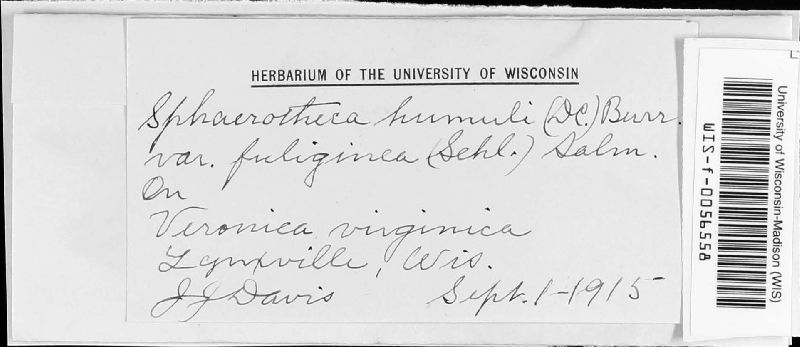 HERBARIUM OF THE UNIVERSITY OF WISCONSIN
Sphaerotheca humuli (DC.) Burr.
var. fuliginea (Schl.) Salm.
On
Veronica virginica
Lynxville, Wis.
J J Davis Sept. 1-1915
University of Wisconsin-Madison (WIS)
WIS-f-0056558